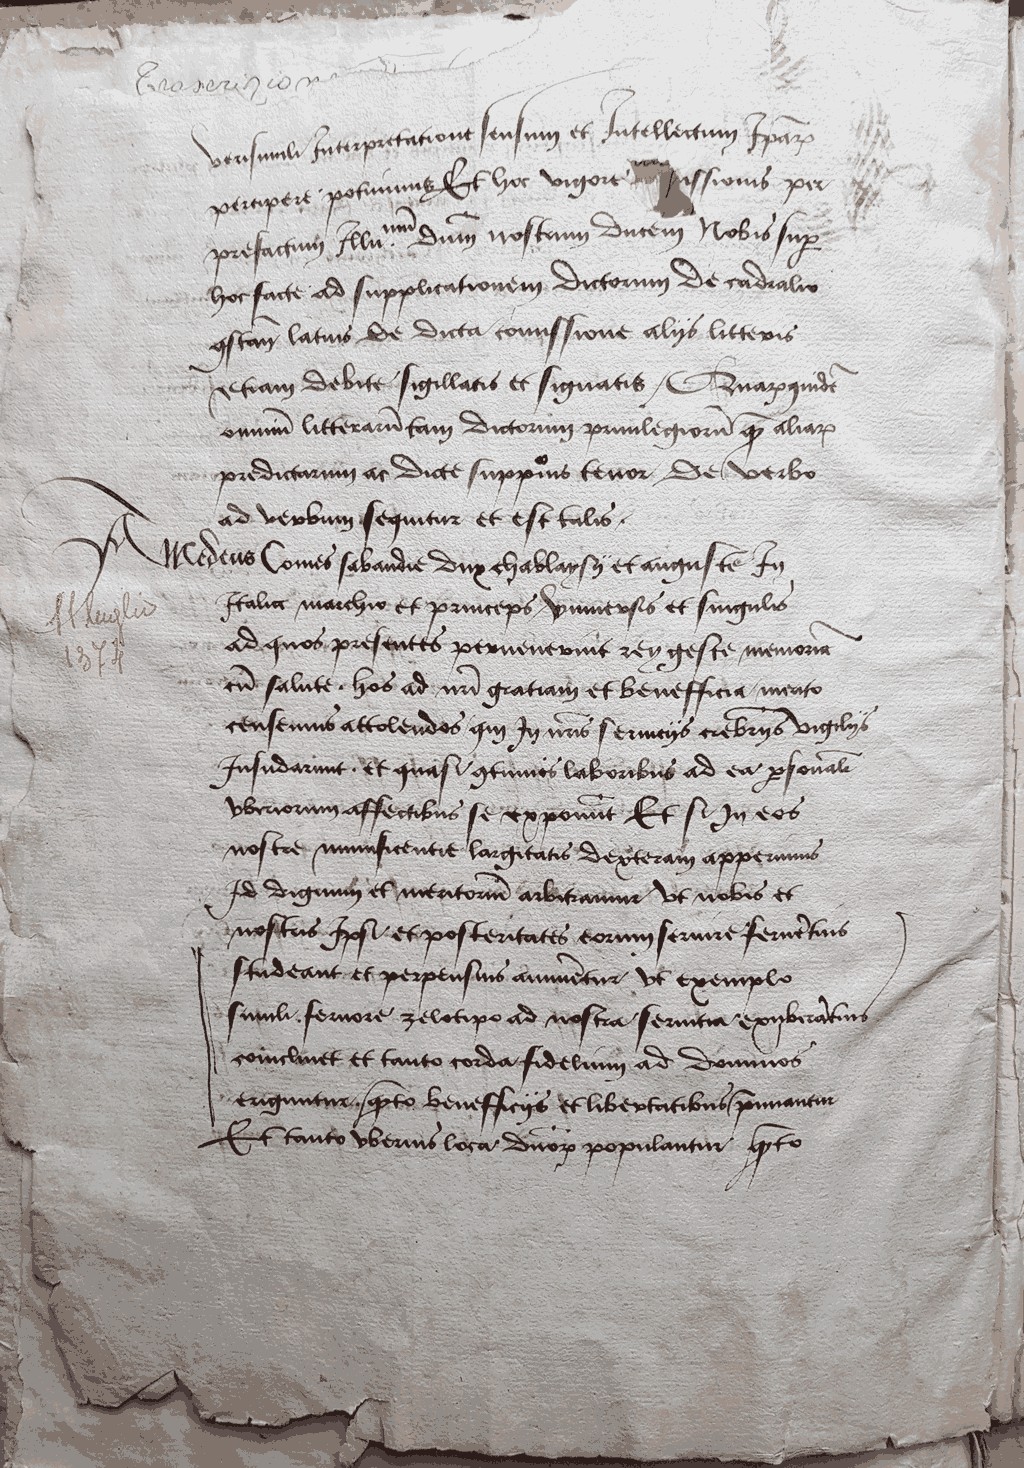 Trascrizione
verisimili Interpretatione sensum et Intellectum Ipar
percipere potuimus Et hoc vigore missionis per
prefactum Illu mum dum nostrum ducem Nobis sup
hoc facte ad supplicationem dictorum de cadralio
9stan latius de dicta comissione alijs litteris
etiam debite sigillatis et signatis / Quarquidē
omniū litterarū tam dictorum privilegiorū qp aliar
predictarum ac dicte suppnis tenor de verbo
ad verbum sequitur et est talis .
AMedeus Comes sabaudie dux chablaysij et auguste In
Italia marchio et princeps Vniversis et singulis
11 luglio
ad quos presentes pervenerint rey geste memoriā
1374
cū salute . hos ad nri gratiam et benefficia merito
censemus attolendos qui In nris servicijs crebrijs vigilijs
Insudarunt . et quasi 9tinuis laboribus ad ea personali
vberiorum affectibus se exponūt Et si In eos
nostre munificentie largitatis dexteram apperimus
Id dignum et meritoriū arbitramur vt nobis et
nostris Ipsi et posteritates eorum servire ferventius
studeant et perpensius animētur vt exemplo
simili . fervore zelotipo ad nostra servitia exuberātius
conclinet et tanto corda fidelium ad dominos
eriguntur . qpto benefficijs et libertatibus pmuniantur
Et tanto vberius loca dnor populantur qpto